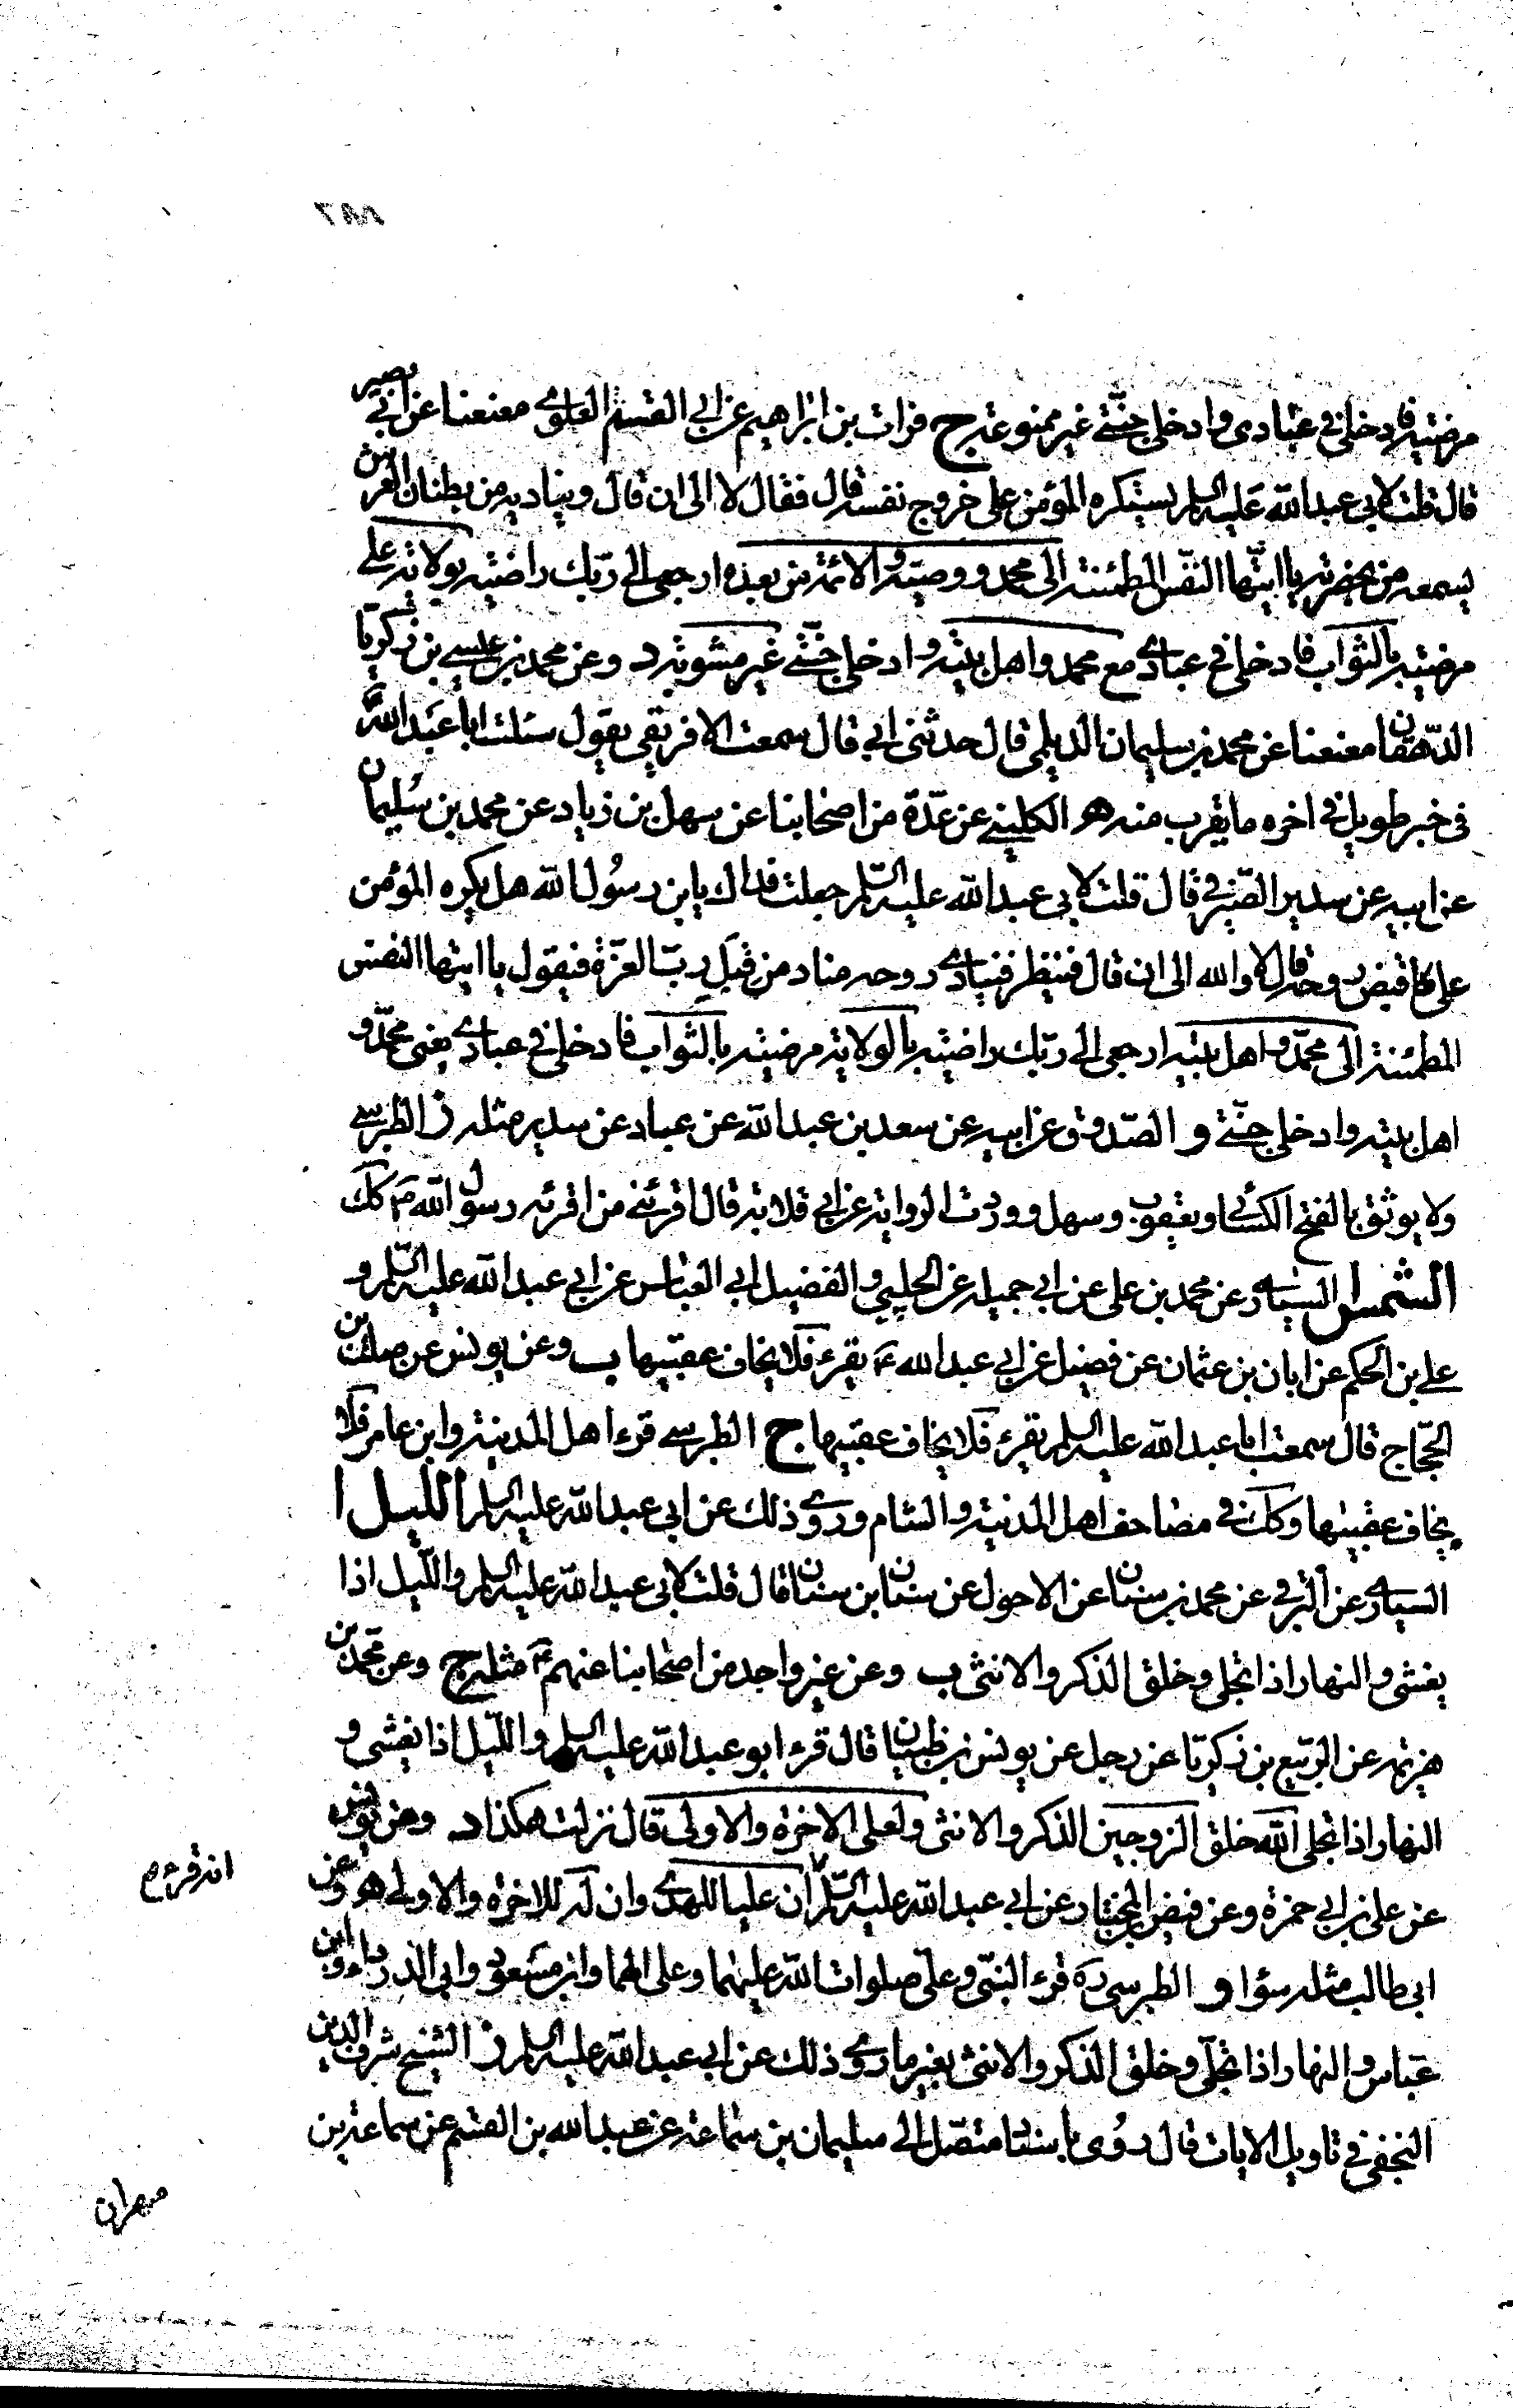 مرضية فادخلي في عبادي وادخلي جنتي غير ممنوعة ج فرات بن ابراهيم عن ابي القسم العلوي معنعنا عن ابي بصير
قال قلت لابي عبد الله عليه السلم يستكره المؤمن على خروج نفسه قال فقال لا الى ان قال ويناديه من بطنان العرش
يسمعه من بحضرته يا ايتها النفس المطمئنة الى محمد ووصيه والائمة من بعده ارجعي الى ربك راضية بولاية علي
مرضية بالثواب فادخلي في عبادي مع محمد واهل بيته وادخلي جنتي غير مشوبة د وعن محمد بن عيسى بن زكريا
الدهقان معنعنا عن محمد بن سليمان الديلمي قال حدثني ابي قال سمعت الافريقي يقول سئلت ابا عبد الله
في خبر طويل في اخره ما يقرب منه هـ الكليني عن عدة من اصحابنا عن سهل بن زياد عن محمد بن سليمان
عن ابيه عن سدير الصيرفي قال قلت لابي عبد الله عليه السلم جعلت فداك يابن رسول الله هل يكره المؤمن
على قبض روحه قال لا والله الى ان قال فينظر فينادي روحه مناد من قبل رب العزة فيقول يا ايتها النفس
المطمئنة الى محمد واهل بيته ارجعي الى ربك راضية بالولاية مرضية بالثواب فادخلي في عبادي يعني محمد و
اهل بيته وادخلي جنتي و الصدوق عن ابيه عن سعد بن عبد الله عن عباد عن سدير مثله ز الطبرسي
ولا يوثق بالفتح الكسائي ويعقوب وسهل ووردت الرواية عن ابي قلابة قال اقرئني من اقرئه رسول الله ص كك
الشمس ا السياري عن محمد بن علي عن ابي جميلة عن الحلبي والفضيل ابي العباس عن ابي عبد الله عليه السلم و
علي بن الحكم عن ابان بن عثمان عن فضيل عن ابي عبد الله ع يقرء فلا يخاف عقبيها ب وعن يونس عن صفوان بن
الحجاج قال سمعت ابا عبد الله عليه السلم يقرء فلا يخاف عقبيها ج الطبرسي قرء اهل المدينة وابن عامر فلا
يخاف عقبيها وكك في مصاحف اهل المدينة والشام وروي ذلك عن ابي عبد الله عليه السلم الليل ا
السياري عن البرقي عن محمد بن سنان عن الاحول عن سنان بن سنان قال قلت لابي عبد الله عليه السلم والليل اذا
يغشى والنهار اذا تجلى وخلق الذكر والانثى ب وعن غير واحد من اصحابنا عنهم ع مثله ج وعن محمد بن
هزيمة عن الربيع بن زكريا عن رجل عن يونس بن ظبيان قال قرء ابو عبد الله عليه السلم والليل اذا يغشى و
النهار اذا تجلى الله خلق الزوجين الذكر والانثى ولعلي الاخرة والاولى قال نزلت هكذا د وعن يونس
عن علي بن ابي حمزة وعن فيض المختار عن ابي عبد الله عليه السلم ان عليا للهدى وان له للاخرة والاولى هـ وعن
انه قرء ص
ابي طالب مثله سؤا و الطبرسي ره قرء النبي وعلي صلوات الله عليهما وعلى الهما وابن مسعود وابي الدرداء وابن
عباس والنهار اذا تجلى وخلق الذكر والانثى بغير ما روي ذلك عن ابي عبد الله عليه السلم ز الشيخ شرف الدين
النجفي في تاويل الايات قال روي باسناد متصل الى سليمان بن سماعة عن عبد الله بن القسم عن سماعة بن
مهران